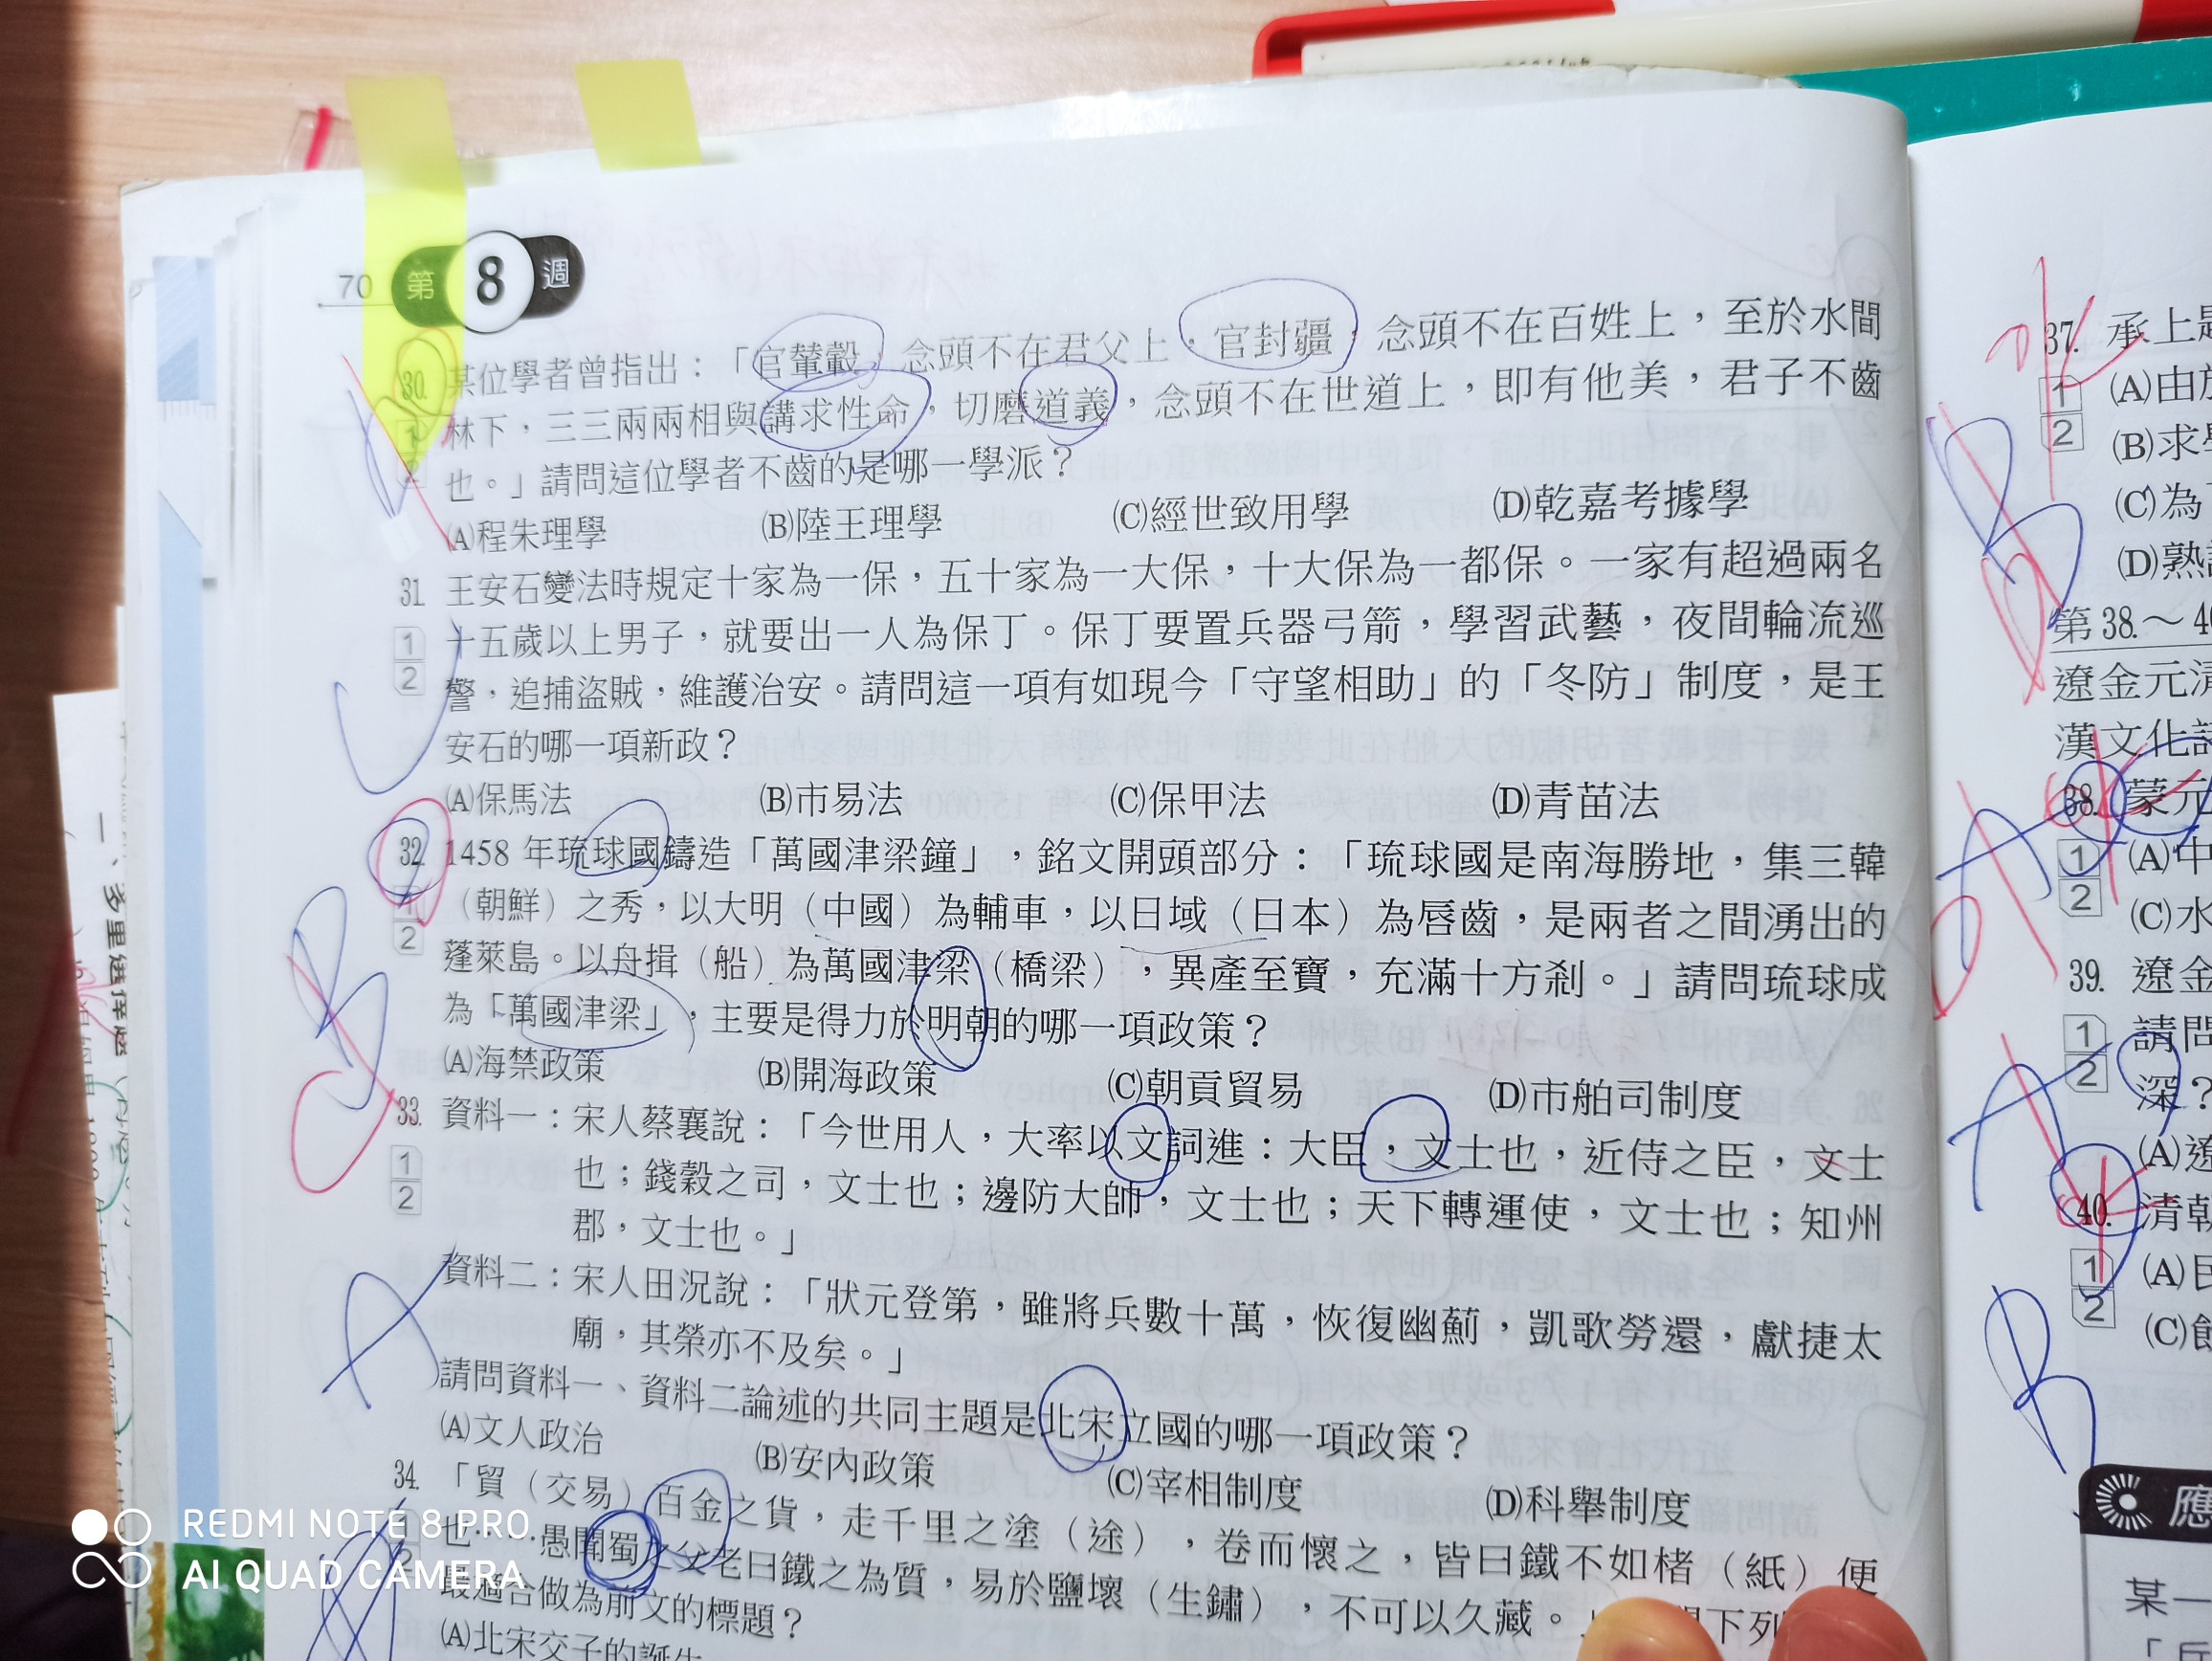 70 第 8 週
30. 某位學者曾指出：「官輦轂，念頭不在君父上，官封疆，念頭不在百姓上，至於水間
1 林下，三三兩兩相與講求性命，切磨道義，念頭不在世道上，即有他美，君子不齒
2 也。」請問這位學者不齒的是哪一學派？
(A)程朱理學 (B)陸王理學 (C)經世致用學 (D)乾嘉考據學
31. 王安石變法時規定十家為一保，五十家為一大保，十大保為一都保。一家有超過兩名
1 十五歲以上男子，就要出一人為保丁。保丁要置兵器弓箭，學習武藝，夜間輪流巡
2 警，追捕盜賊，維護治安。請問這一項有如現今「守望相助」的「冬防」制度，是王
安石的哪一項新政？
C
(A)保馬法 (B)市易法 (C)保甲法 (D)青苗法
32. 1458 年琉球國鑄造「萬國津梁鐘」，銘文開頭部分：「琉球國是南海勝地，集三韓
1 （朝鮮）之秀，以大明（中國）為輔車，以日域（日本）為唇齒，是兩者之間湧出的
2 蓬萊島。以舟揖（船）為萬國津梁（橋梁），異產至寶，充滿十方剎。」請問琉球成
為「萬國津梁」，主要是得力於明朝的哪一項政策？
B
C
(A)海禁政策 (B)開海政策 (C)朝貢貿易 (D)市舶司制度
33. 資料一：宋人蔡襄說：「今世用人，大率以文詞進：大臣，文士也，近侍之臣，文士
1 也；錢穀之司，文士也；邊防大帥，文士也；天下轉運使，文士也；知州
2 郡，文士也。」
資料二：宋人田況說：「狀元登第，雖將兵數十萬，恢復幽薊，凱歌勞還，獻捷太
廟，其榮亦不及矣。」
A
請問資料一、資料二論述的共同主題是北宋立國的哪一項政策？
(A)文人政治 (B)安內政策 (C)宰相制度 (D)科舉制度
34. 「貿（交易）百金之貨，走千里之塗（途），卷而懷之，皆曰鐵不如楮（紙）便
1 也……愚聞蜀之父老曰鐵之為質，易於鹽壞（生鏽），不可以久藏。」
2 最適合做為前文的標題？
(A)北宋交子的誕生
37. 承上題
1 (A)由於
2 (B)求學
(C)為
(D)熟
B
第 38.～40
遼金元清
漢文化
38. 蒙元
1 (A)中
2 (C)水
A
39. 遼金
1 請問
2 深？
(A)遼
A
40. 清朝
1 (A)民
2 (C)
B
應
某一
一、多里選擇
REDMI NOTE 8 PRO
AI QUAD CAMERA